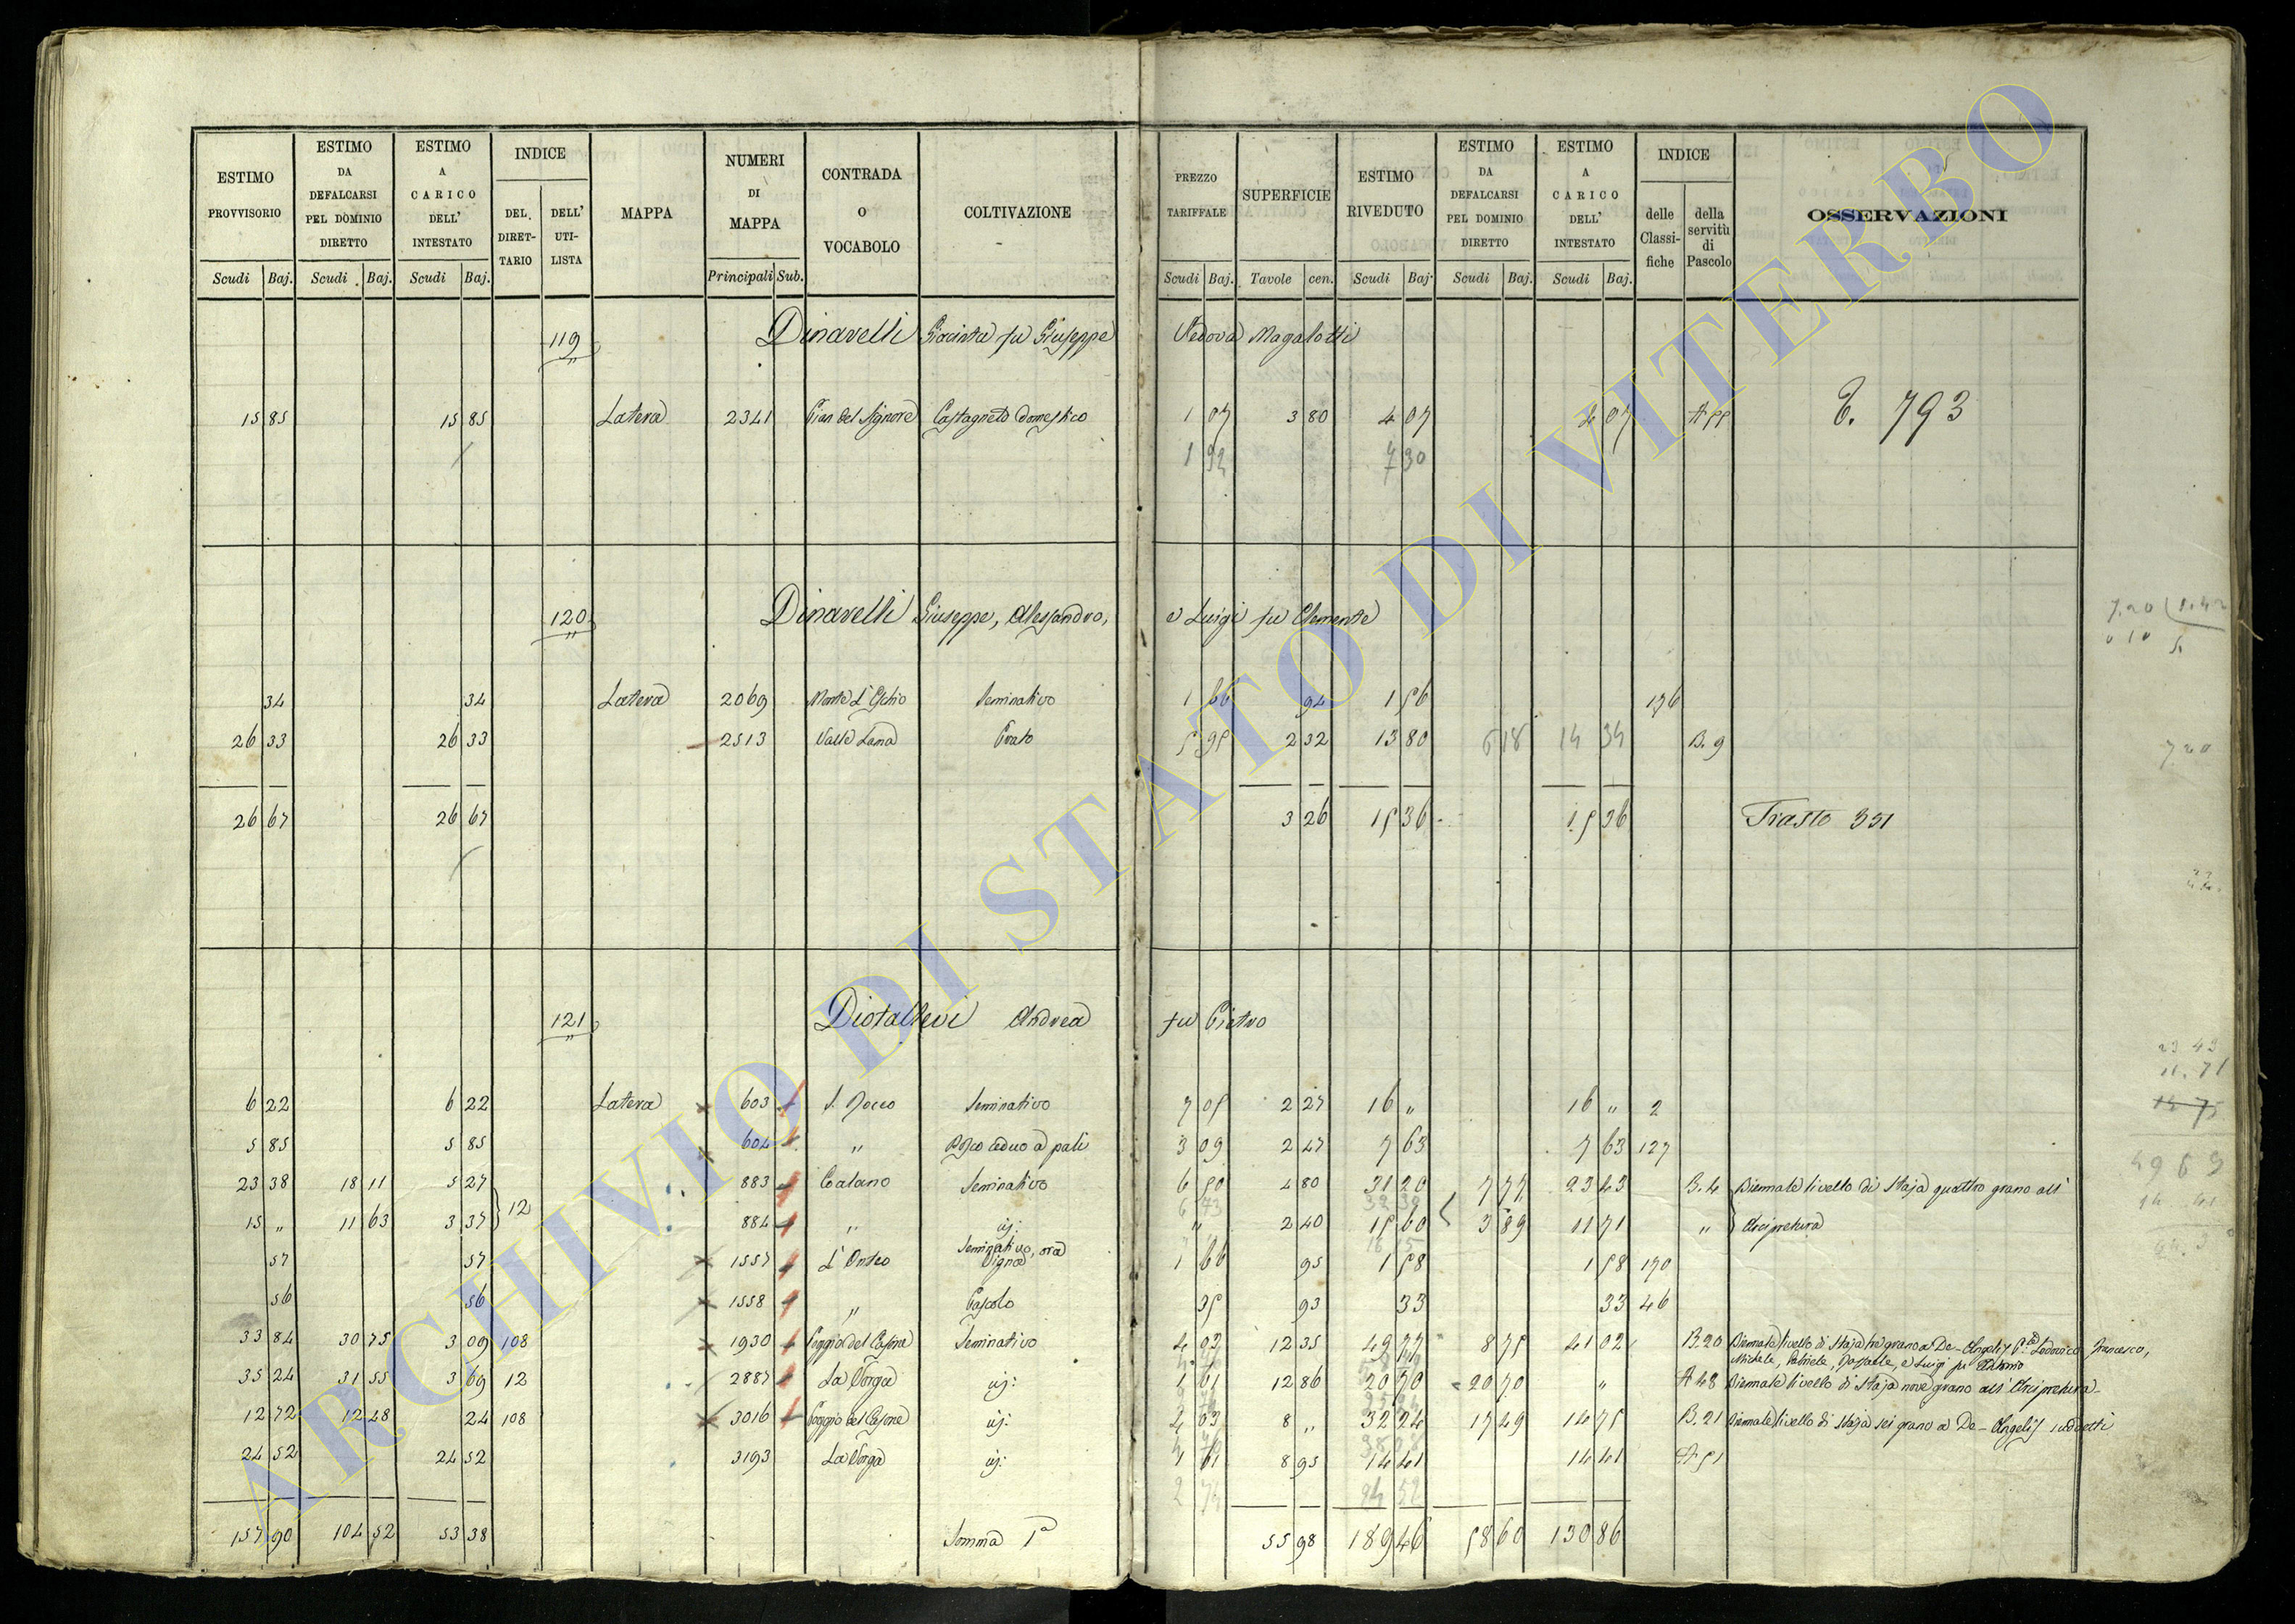 ESTIMO PROVVISORIO | ESTIMO DA DEFALCARSI PEL DOMINIO DIRETTO | ESTIMO A CARICO DELL' INTESTATO | INDICE | MAPPA | NUMERI DI MAPPA | CONTRADA O VOCABOLO | COLTIVAZIONE | PREZZO TARIFFALE | SUPERFICIE | ESTIMO RIVEDUTO | ESTIMO DA DEFALCARSI PEL DOMINIO DIRETTO | ESTIMO A CARICO DELL' INTESTATO | INDICE | OSSERVAZIONI
DEL DIRETTARIO | DELL' UTILISTA | delle Classifiche | della servitù di Pascolo
Scudi | Baj. | Scudi | Baj. | Scudi | Baj. | Principali | Sub. | Scudi | Baj. | Tavole | cen. | Scudi | Baj. | Scudi | Baj. | Scudi | Baj.
119 Dinarelli Giacinta fu Giuseppe Vedova Magalotti
15 85 | 15 85 | Latera | 2341 | Pian del Signore | Castagneto domestico | 1 07 | 3 80 | 4 07 | 4 07 | A 55 | T. 793
1 92 | 7 30
120 Dinarelli Giuseppe, Alessandro, e Luigi fu Clemente
34 | 34 | Latera | 2069 | Monte L'Eschio | Seminativo | 1 66 | 94 | 1 56 | 176
26 33 | 26 33 | 2513 | Valle Lama | Prato | 5 95 | 2 32 | 13 80 | 14 34 | B. 9
26 67 | 26 67 | 3 26 | 15 36 | 15 36 | Trasto 331
7.20
121 Diotallevi Andrea fu Pietro
6 22 | 6 22 | Latera | 603 | S. Rocco | Seminativo | 7 05 | 2 27 | 16 " | 16 " | 2
5 85 | 5 85 | 604 | " | Bosco ceduo a pali | 3 09 | 2 47 | 7 63 | 7 63 | 127
23 38 | 18 11 | 5 27 | 12 | 883 | Catano | Seminativo | 6 50 | 4 80 | 31 20 | 7 77 | 23 43 | B. 4 | Biennale livello di Staja quattro grano all'
15 " | 11 63 | 3 37 | 884 | " | id: | " | 2 40 | 15 60 | 3 89 | 11 71 | " | Arcipretura
57 | 57 | 1557 | L' Onteo | Seminativo, ora Vigna | 1 66 | 95 | 1 58 | 1 58 | 170
56 | 56 | 1558 | " | Pascolo | 35 | 93 | 33 | 33 | 46
33 84 | 30 75 | 3 09 | 108 | 1930 | Poggio del Casone | Seminativo | 4 03 | 12 35 | 49 77 | 8 75 | 41 02 | B. 20 | Biennale livello di Staja tre grano a De-Angelis Lodovico, Francesco,
Michele, Gabriele, Raffaele, e Luigi fu Antonio
35 24 | 31 55 | 3 69 | 12 | 2887 | La Vorga | id: | 1 61 | 12 86 | 20 70 | 20 70 | " | A 48 | Biennale livello di Staja nove grano all' Arcipretura
12 72 | 12 48 | 24 | 108 | 3016 | Poggio del Casone | id: | 4 03 | 8 " | 32 24 | 17 49 | 14 75 | B. 21 | Biennale livello di Staja sei grano a De-Angelis suddetti
24 52 | 24 52 | 3193 | La Vorga | id: | 1 61 | 8 95 | 14 41 | 14 41 | A 51
157 90 | 104 52 | 53 38 | Somma Pa | 55 98 | 189 46 | 58 60 | 130 86
23 43
11.71
14 75
ARCHIVIO DI STATO DI VITERBO